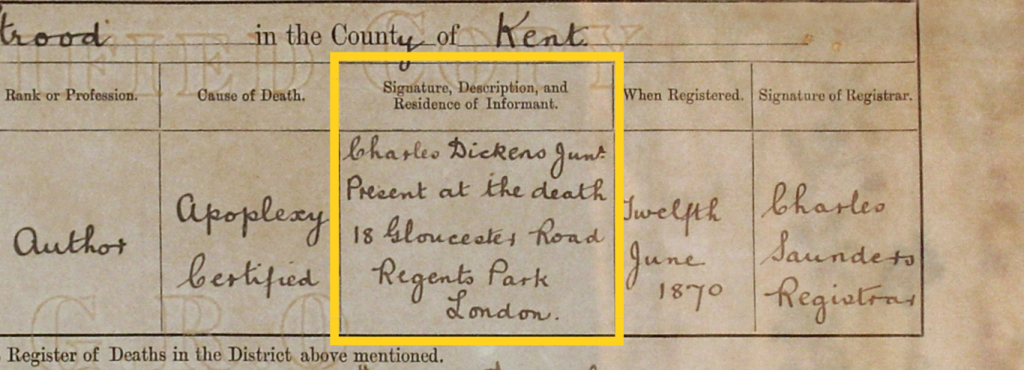 trood in the County of Kent.
Rank or Profession. Cause of Death. Signature, Description, and Residence of Informant. When Registered. Signature of Registrar.
Author
Apoplexy
Certified
Charles Dickens Junr
Present at the death
18 Gloucester Road
Regents Park
London.
Twelfth
June
1870
Charles
Saunders
Registrar
Register of Deaths in the District above mentioned.
CERTIFIED COPY
GRO